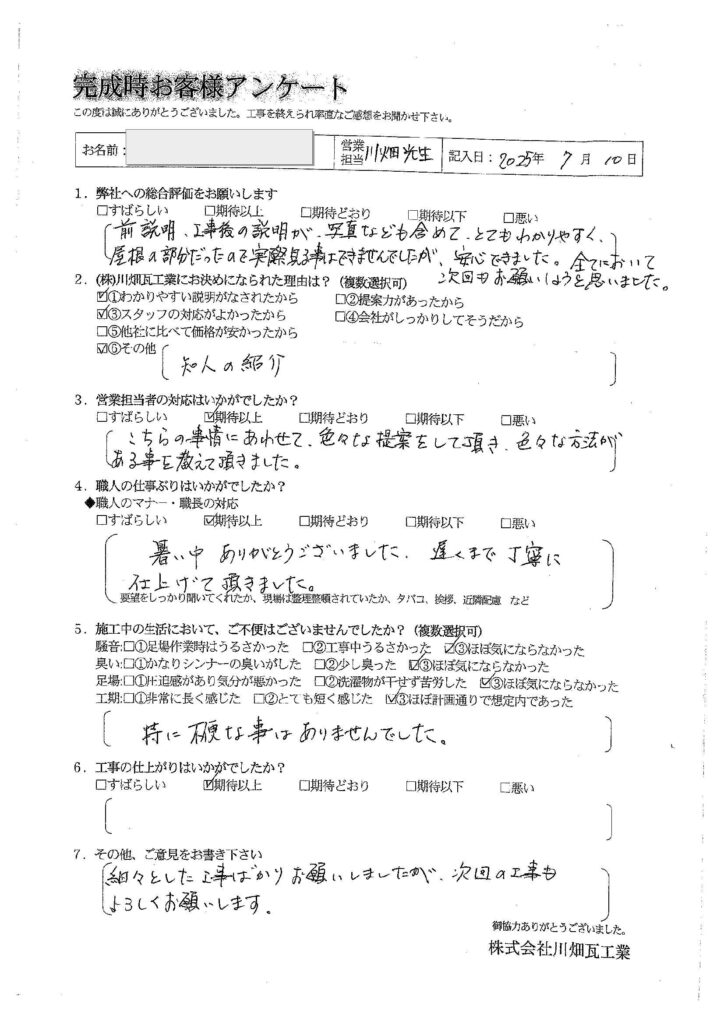 完成時お客様アンケート
この度は誠にありがとうございました。工事を終えられ率直なご感想をお聞かせ下さい。
お名前： 営業担当 川畑光生 記入日：2025年 7月 10日
1．弊社への総合評価をお願いします
□すばらしい □期待以上 □期待どおり □期待以下 □悪い
前説明、工事後の説明が、写真なども含めて、とてもわかりやすく、
屋根の部分だったので実際見る事はできませんでしたが、安心できました。全てにおいて
次回もお願いしようと思いました。
2．(株)川畑瓦工業にお決めになられた理由は？（複数選択可）
☑①わかりやすい説明がなされたから □②提案力があったから
☑③スタッフの対応がよかったから □④会社がしっかりしてそうだから
□⑤他社に比べて価格が安かったから
☑⑥その他 知人の紹介
3．営業担当者の対応はいかがでしたか？
□すばらしい ☑期待以上 □期待どおり □期待以下 □悪い
こちらの事情にあわせて、色々な提案をして頂き、色々な方法が
ある事を教えて頂きました。
4．職人の仕事ぶりはいかがでしたか？
◆職人のマナー・職長の対応
□すばらしい ☑期待以上 □期待どおり □期待以下 □悪い
暑い中 ありがとうございました。遅くまで丁寧に
仕上げて頂きました。
要望をしっかり聞いてくれたか、現場は整理整頓されていたか、タバコ、挨拶、近隣配慮 など
5．施工中の生活において、ご不便はございませんでしたか？（複数選択可）
騒音:□①足場作業時はうるさかった □②工事中うるさかった ☑③ほぼ気にならなかった
臭い:□①かなりシンナーの臭いがした □②少し臭った ☑③ほぼ気にならなかった
足場:□①圧迫感があり気分が悪かった □②洗濯物が干せず苦労した ☑③ほぼ気にならなかった
工期:□①非常に長く感じた □②とても短く感じた ☑③ほぼ計画通りで想定内であった
特に不便な事はありませんでした。
6．工事の仕上がりはいかがでしたか？
□すばらしい ☑期待以上 □期待どおり □期待以下 □悪い
7．その他、ご意見をお書き下さい
細々とした工事ばかりお願いしましたが、次回の工事も
よろしくお願いします。
御協力ありがとうございました。
株式会社川畑瓦工業